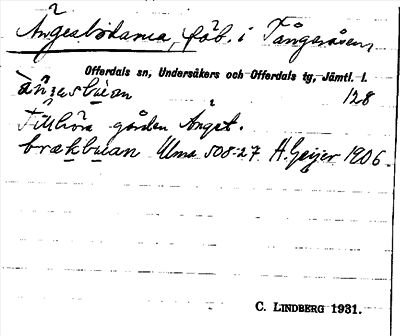 Ängesbodarna, fäb. i Tångeråsen
Offerdals sn, Undersåkers och Offerdals tg, Jämtl. l.
128
Tillhöra gården Änget.
brækbuan Ulma 508:27 H. Geijer 1906.
C. LINDBERG 1931.